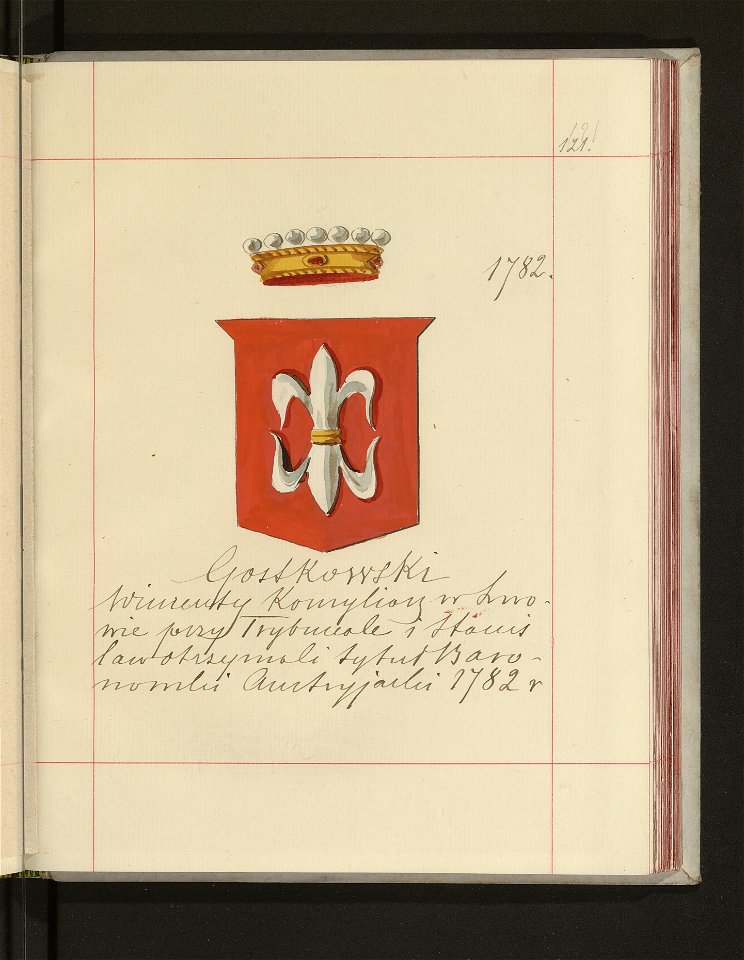 121.
1782.
Gostkowski
Wincenty Komyliarz w Lwo-
wie przy Trybunale i Stanis
ław otrzymali tytuł Baro-
nowski Austryjacki 1782 r